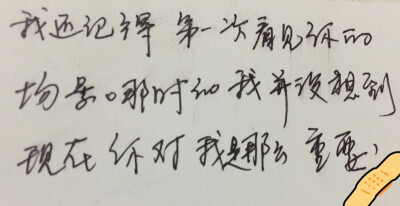 我还记得第一次看见你的
场景。那时的我并没想到
现在你对我是那么重要